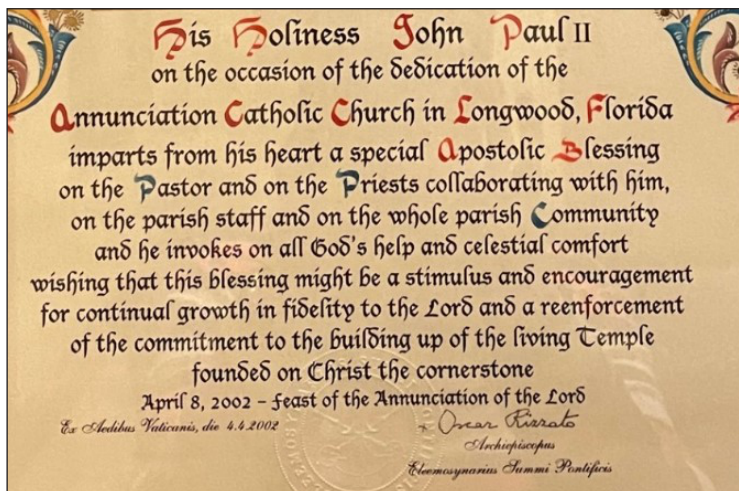 His Holiness John Paul II
on the occasion of the dedication of the
Annunciation Catholic Church in Longwood, Florida
imparts from his heart a special Apostolic Blessing
on the Pastor and on the Priests collaborating with him,
on the parish staff and on the whole parish Community
and he invokes on all God's help and celestial comfort
wishing that this blessing might be a stimulus and encouragement
for continual growth in fidelity to the Lord and a reenforcement
of the commitment to the building up of the living Temple
founded on Christ the cornerstone
April 8, 2002 - feast of the Annunciation of the Lord
Ex Aedibus Vaticanis, die 4.4.2002
+ Oscar Rizzato
Archiepiscopus
Eleemosynarius Summi Pontificis